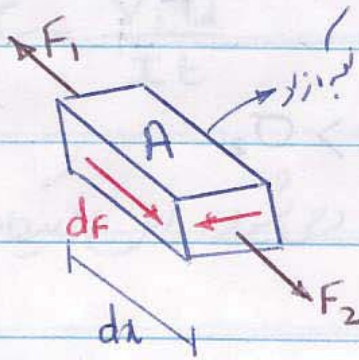 F₁
لبه آزاد
A
dF
F₂
dx